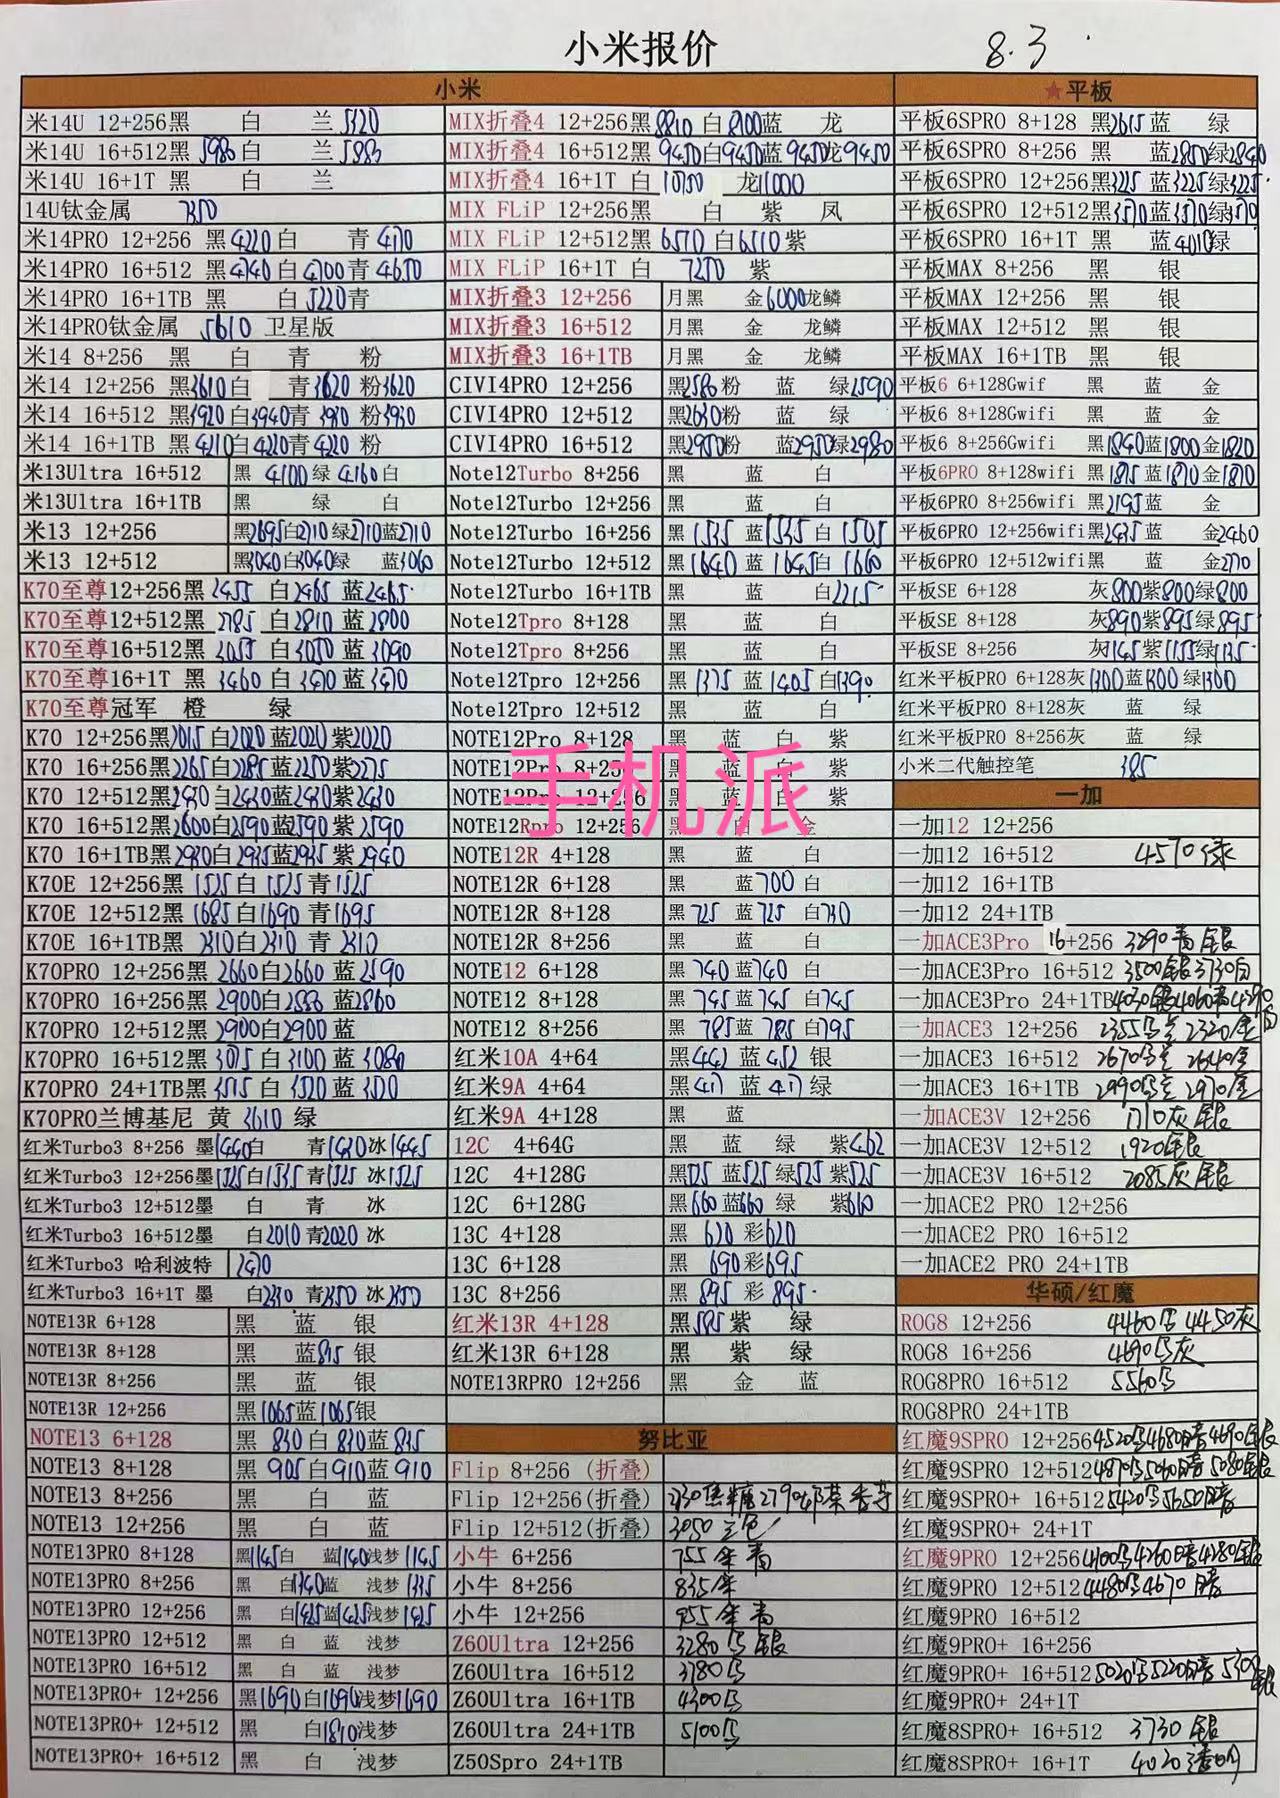 小米报价 8.3
小米
米14U 12+256黑 白 兰5320
米14U 16+512黑5980白 兰
米14U 16+1T 黑 白 兰
14U钛金属
米14PRO 12+256 黑4220白 青
米14PRO 16+512 黑4740白4700青4650
米14PRO 16+1TB 黑 白5220青
米14PRO钛金属 5610 卫星版
米14 8+256 黑 白 青 粉
米14 12+256 黑3610白 青3620 粉3620
米14 16+512 黑3920白3940青3930粉3930
米14 16+1TB 黑4210白4220青4220粉
米13Ultra 16+512 黑 4100绿 4160白
米13Ultra 16+1TB 黑 绿 白
米13 12+256 黑2695白2710绿2710蓝2710
米13 12+512 黑3040白3040绿 蓝3060
K70至尊12+256黑 2455 白2465 蓝2465
K70至尊12+512黑 2785 白2810 蓝2800
K70至尊16+512黑 3055 白3050 蓝3090
K70至尊16+1T 黑 3460 白3470 蓝3470
K70至尊冠军 橙 绿
K70 12+256黑2015白2020蓝2020紫2020
K70 16+256黑2265白2285蓝2250紫2275
K70 12+512黑2430白2430蓝2430紫2430
K70 16+512黑2600白2590蓝2590紫2590
K70 16+1TB黑2930白2935蓝2935紫2940
K70E 12+256黑 1525白 1525青1525
K70E 12+512黑 1685白1690 青1695
K70E 16+1TB黑 2310白2310 青 2310
K70PRO 12+256黑 2660白2660 蓝2590
K70PRO 16+256黑 2900白2880 蓝2860
K70PRO 12+512黑 2900白2900 蓝
K70PRO 16+512黑 3075 白3100 蓝3080
K70PRO 24+1TB黑 3515 白3520 蓝3520
K70PRO兰博基尼 黄 3610 绿
红米Turbo3 8+256 墨1440白 青1430冰1445
红米Turbo3 12+256墨1525白1535青1525 冰1525
红米Turbo3 12+512墨 白 青 冰
红米Turbo3 16+512墨 白2010 青2020 冰
红米Turbo3 哈利波特 2470
红米Turbo3 16+1T 墨 白2340 青2350 冰2350
NOTE13R 6+128 黑 蓝 银
NOTE13R 8+128 黑 蓝815银
NOTE13R 8+256 黑 蓝 银
NOTE13R 12+256 黑1065蓝1065银
NOTE13 6+128 黑 830白 830蓝 835
NOTE13 8+128 黑 905白910蓝 910
NOTE13 8+256 黑 白 蓝
NOTE13 12+256 黑 白 蓝
NOTE13PRO 8+128 黑1145白 蓝1140浅梦1145
NOTE13PRO 8+256 黑 白1340蓝 浅梦1335
NOTE13PRO 12+256 黑 白1425蓝1425浅梦1425
NOTE13PRO 12+512 黑 白 蓝 浅梦
NOTE13PRO 16+512 黑 白 蓝 浅梦
NOTE13PRO+ 12+256 黑1690白1690浅梦1690
NOTE13PRO+ 12+512 黑 白1810浅梦
NOTE13PRO+ 16+512 黑 白 浅梦
MIX折叠4 12+256黑8810 白8100蓝 龙
MIX折叠4 16+512黑9450白9450蓝9450龙9450
MIX折叠4 16+1T 白 龙11000
MIX FLiP 12+256黑 白 紫 凤
MIX FLiP 12+512黑6570 白6510紫
MIX FLiP 16+1T 白 7250 紫
MIX折叠3 12+256 月黑 金6000龙鳞
MIX折叠3 16+512 月黑 金 龙鳞
MIX折叠3 16+1TB 月黑 金 龙鳞
CIVI4PRO 12+256 黑2580粉 蓝 绿2590
CIVI4PRO 12+512 黑2630粉 蓝 绿
CIVI4PRO 16+512 黑2950粉 蓝2950绿2980
Note12Turbo 8+256 黑 蓝 白
Note12Turbo 12+256 黑 蓝 白
Note12Turbo 16+256 黑 1535 蓝1535 白 1505
Note12Turbo 12+512 黑 1640 蓝1645白 1660
Note12Turbo 16+1TB 黑 蓝 白2215
Note12Tpro 8+128 黑 蓝 白
Note12Tpro 8+256 黑 蓝 白
Note12Tpro 12+256 黑 1375 蓝 1405 白1390
Note12Tpro 12+512 黑 蓝 白
NOTE12Pro 8+128 黑 蓝 白 紫
NOTE12Pro 8+256 黑 蓝 白 紫
NOTE12Pro 12+256 黑 蓝 白 紫
NOTE12Rpro 12+256 黑 白 金
手机派
NOTE12R 4+128 黑 蓝 白
NOTE12R 6+128 黑 蓝700 白
NOTE12R 8+128 黑 725 蓝725 白730
NOTE12R 8+256 黑 蓝 白
NOTE12 6+128 黑 740 蓝740 白
NOTE12 8+128 黑 745 蓝745 白745
NOTE12 8+256 黑 785蓝 785 白795
红米10A 4+64 黑442 蓝452 银
红米9A 4+64 黑417 蓝417绿
红米9A 4+128 黑 蓝
12C 4+64G 黑 蓝 绿 紫462
12C 4+128G 黑525 蓝525绿525紫525
12C 6+128G 黑660蓝660 绿 紫660
13C 4+128 黑 620彩620
13C 6+128 黑 690彩695
13C 8+256 黑 895 彩 895
红米13R 4+128 黑595紫 绿
红米13R 6+128 黑 紫 绿
NOTE13RPRO 12+256 黑 金 蓝
努比亚
Flip 8+256 (折叠)
Flip 12+256(折叠) 2730焦糖2790
Flip 12+512(折叠) 3050三色
小牛 6+256 755
小牛 8+256 835
小牛 12+256 955
Z60Ultra 12+256 3280 银
Z60Ultra 16+512 3780
Z60Ultra 16+1TB 4300
Z60Ultra 24+1TB 5100
Z50Spro 24+1TB
★平板
平板6SPRO 8+128 黑2615蓝 绿
平板6SPRO 8+256 黑 蓝2850绿2840
平板6SPRO 12+256黑3225 蓝3225绿3225
平板6SPRO 12+512黑3570蓝3570绿3570
平板6SPRO 16+1T 黑 蓝4010绿
平板MAX 8+256 黑 银
平板MAX 12+256 黑 银
平板MAX 12+512 黑 银
平板MAX 16+1TB 黑 银
平板6 6+128Gwif 黑 蓝 金
平板6 8+128Gwifi 黑 蓝 金
平板6 8+256Gwifi 黑1840蓝1800金1820
平板6PRO 8+128wifi 黑1875 蓝1870 金1870
平板6PRO 8+256wifi 黑2195蓝 金
平板6PRO 12+256wifi黑2435蓝 金2460
平板6PRO 12+512wifi黑 蓝 金2770
平板SE 6+128 灰800紫800绿800
平板SE 8+128 灰890紫895绿895
平板SE 8+256 灰1145紫1155绿1135
红米平板PRO 6+128灰1300蓝1300 绿1300
红米平板PRO 8+128灰 蓝 绿
红米平板PRO 8+256灰 蓝 绿
小米二代触控笔 385
一加
一加12 12+256
一加12 16+512 4570绿
一加12 16+1TB
一加12 24+1TB
一加ACE3Pro 16+256 3290青银
一加ACE3Pro 16+512 3500银3730白
一加ACE3Pro 24+1TB4030银4060青
一加ACE3 12+256 2355 2320金
一加ACE3 16+512 2670 2640金
一加ACE3 16+1TB 2990 2970金
一加ACE3V 12+256 1710灰银
一加ACE3V 12+512 1920银
一加ACE3V 16+512 2085灰银
一加ACE2 PRO 12+256
一加ACE2 PRO 16+512
一加ACE2 PRO 24+1TB
华硕/红魔
ROG8 12+256 4460 4450灰
ROG8 16+256 4690 灰
ROG8PRO 16+512 5560
ROG8PRO 24+1TB
红魔9SPRO 12+256 4520 4680暗4690银
红魔9SPRO 12+512 4870 5060暗 5080银
红魔9SPRO+ 16+512 5420 5650暗
红魔9SPRO+ 24+1T
红魔9PRO 12+256 4100 4260暗4280银
红魔9PRO 12+512 4480 4670 暗
红魔9PRO 16+512
红魔9PRO+ 16+256
红魔9PRO+ 16+512 5020 5220暗 银
红魔9PRO+ 24+1T
红魔8SPRO+ 16+512 3730 银
红魔8SPRO+ 16+1T 4020透明